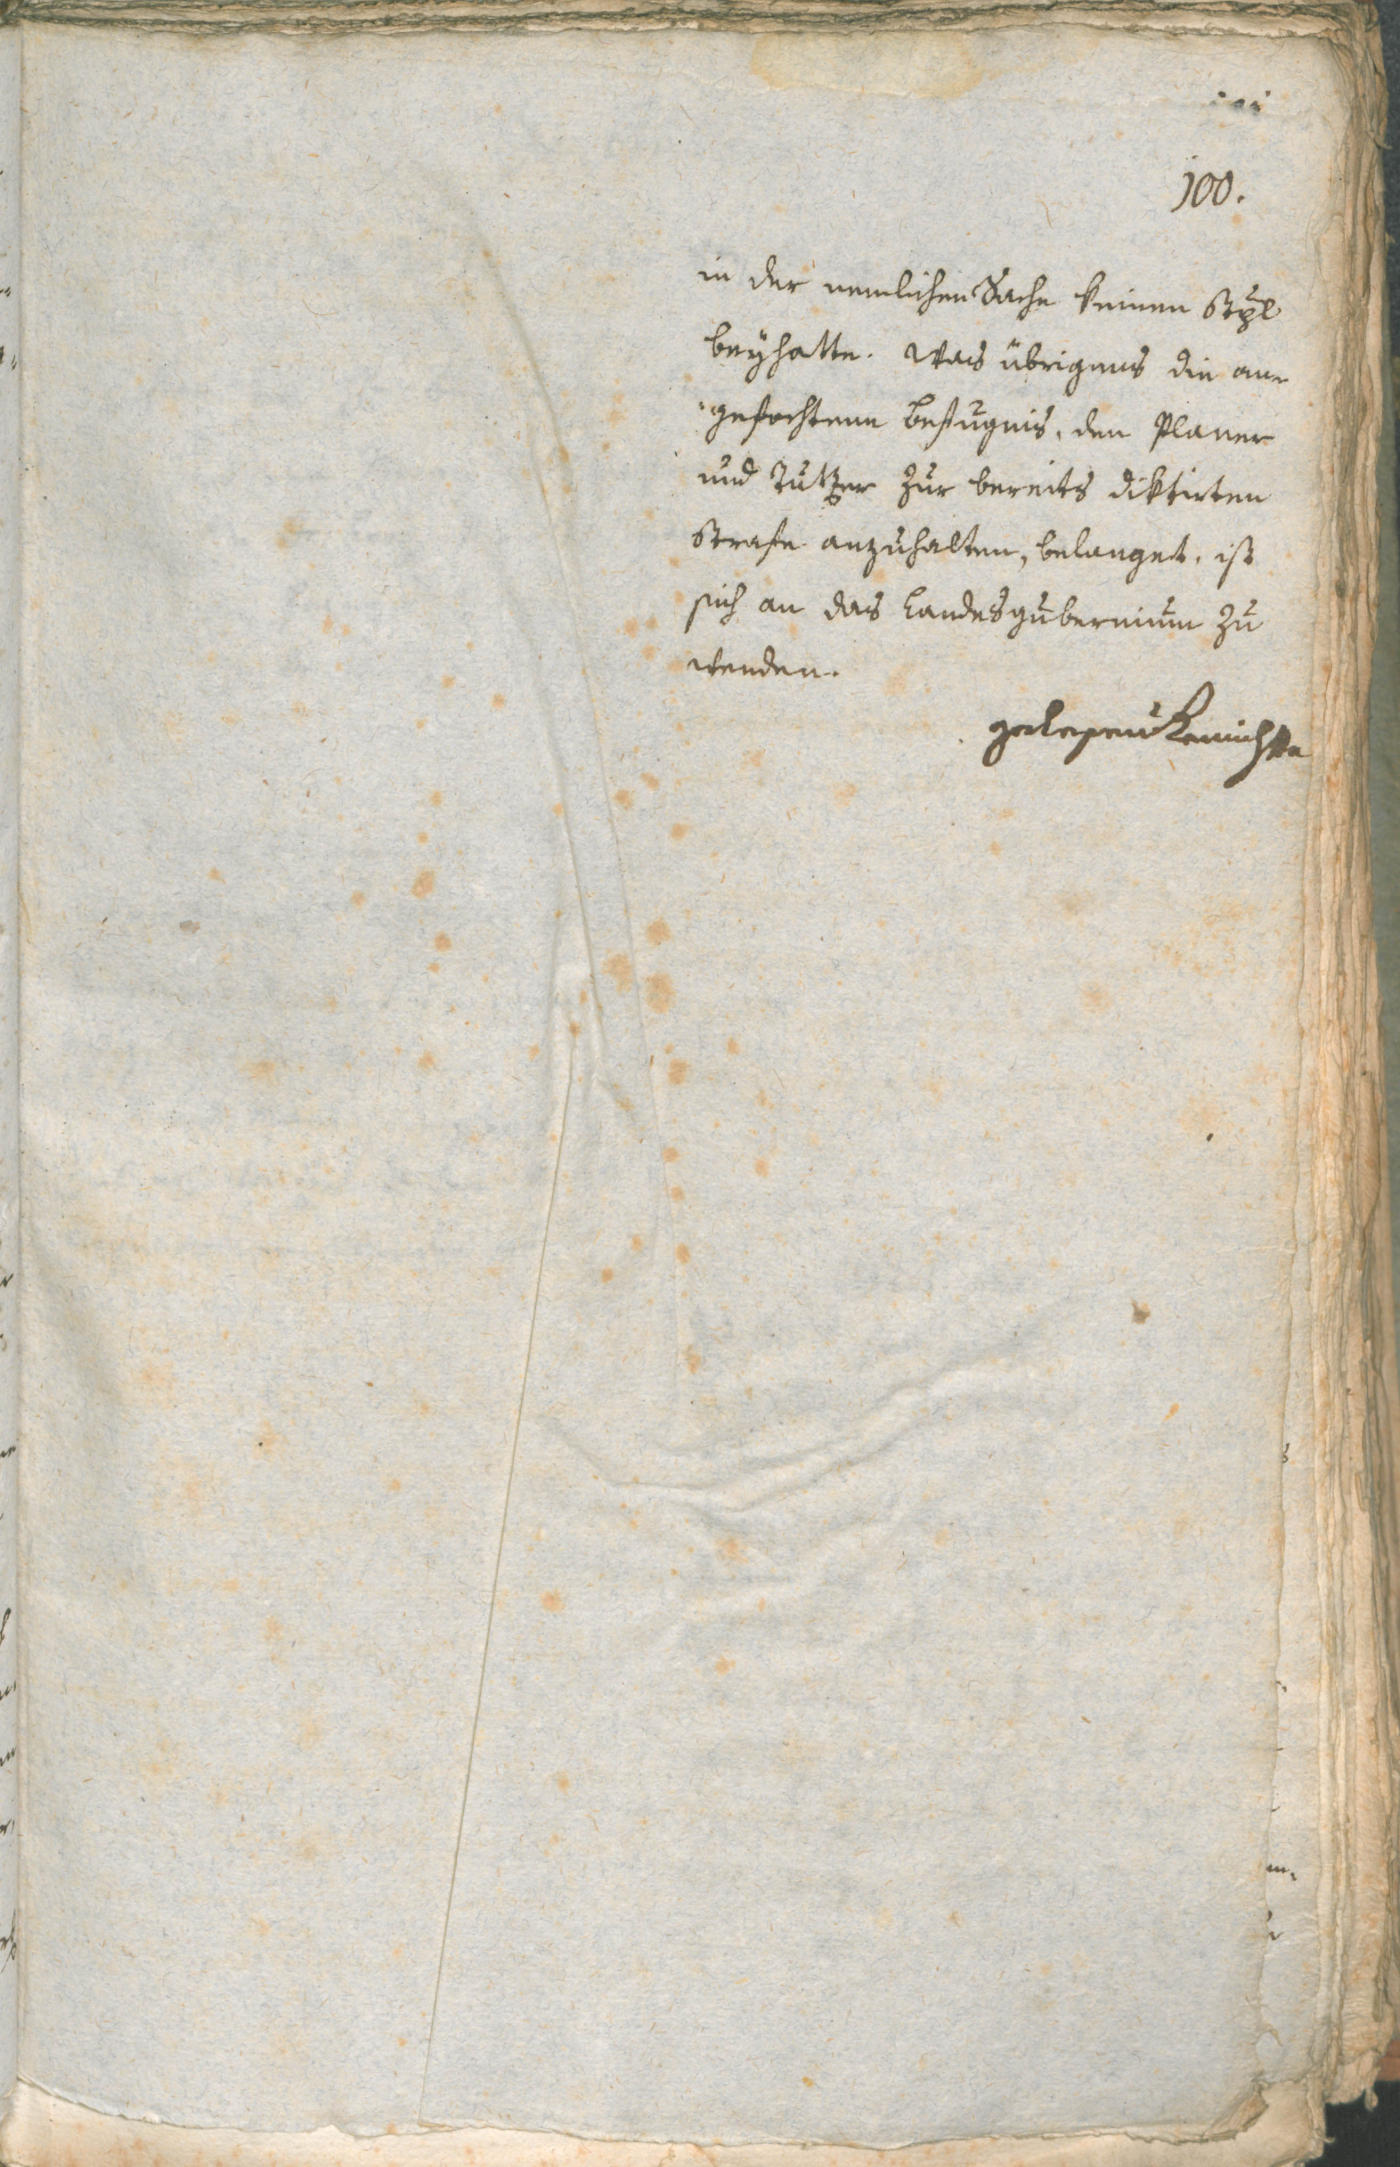 100.
in der nemlichen Sache keinen Styl
beyhatte. Was übrigens die an-
gefochtene Befugnis, den Planer
und Tutzer zur bereits diktirten
Strafe anzuhalten, belanget, ist
sich an das Landesgubernium zu
wenden.